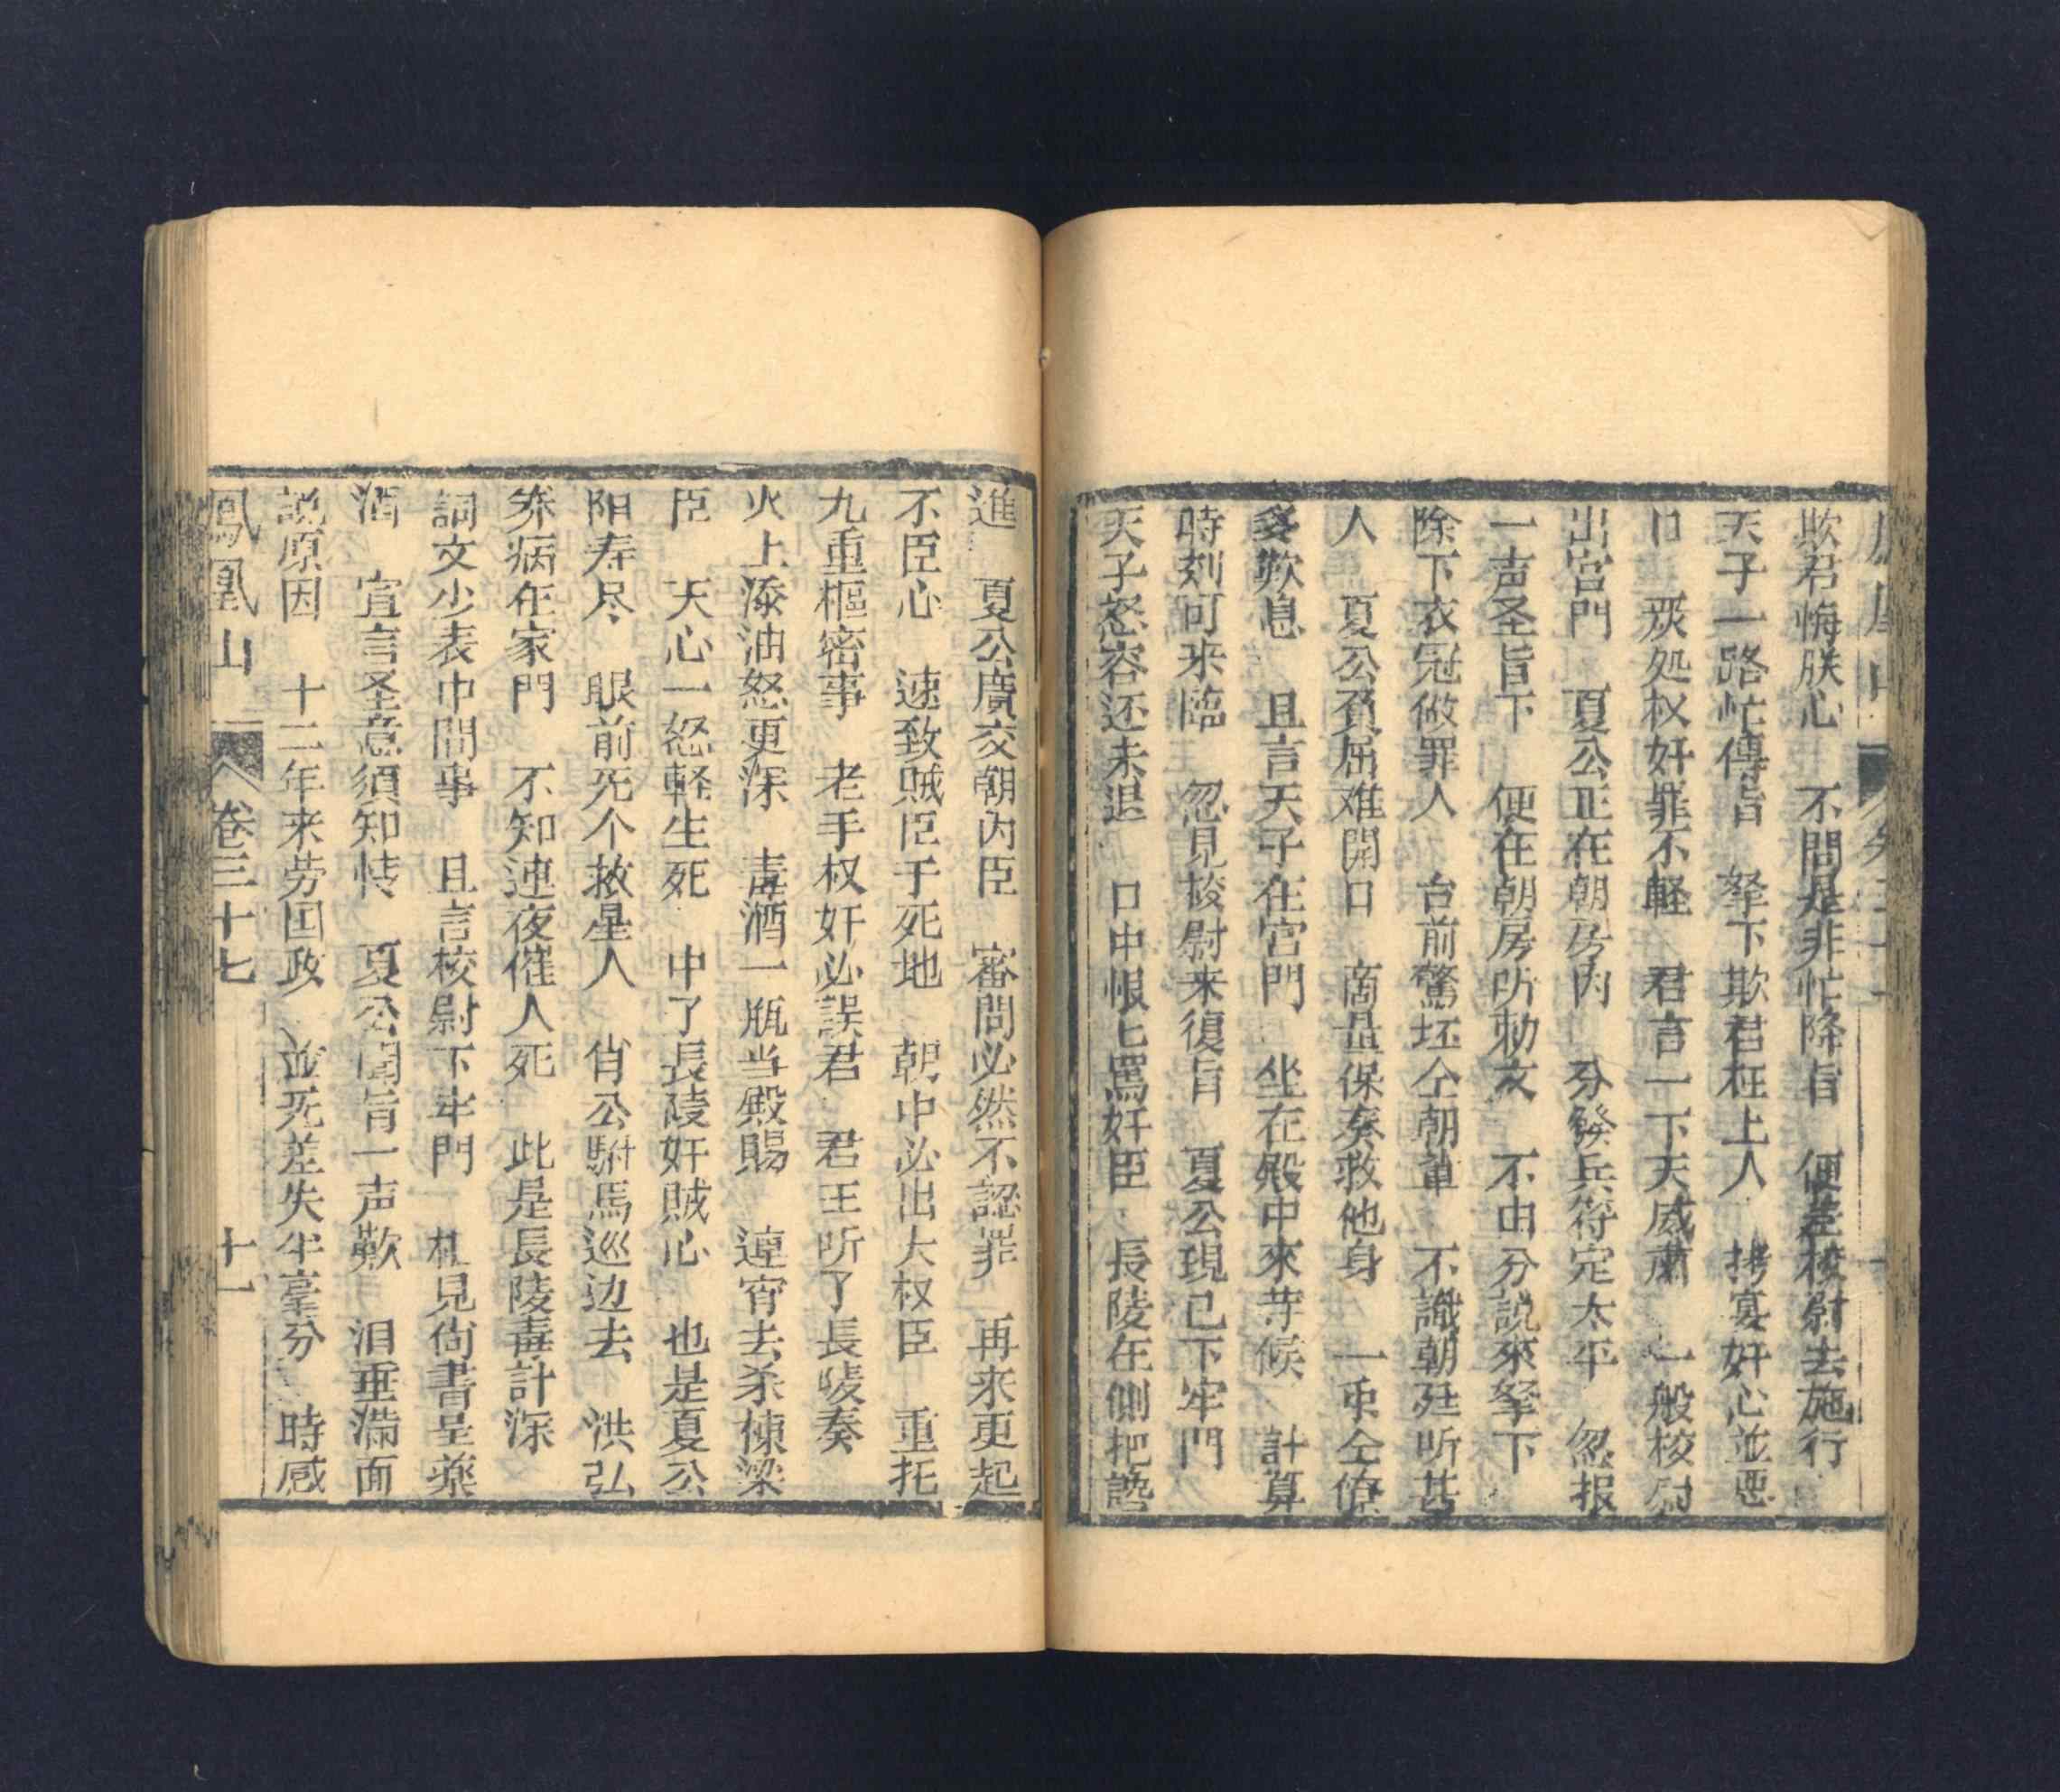 欺君悔朕心　不問是非忙降旨　便差校尉去施行
天子一路忙傳旨　拏下欺君枉上人　拷宴奸心並恶
口　双处权奸罪不軽　君言一下天威肅　一般校尉
出宫門　夏公正在朝房内　分發兵符定太平　忽报
一声圣旨下　便在朝房听勅文　不由分説來拏下
除下衣冠做罪人　台前驚坯仝朝軰　不識朝廷听甚
人　夏公負屈难開口　啇量保奏救他身　一重仝僚
多歎息　且言天子在宫門　坐在殿中來等候　計算
時刻可来臨　忽見校尉来復旨　夏公現已下牢門
天子怒容还未退　口中恨匕罵奸臣　長陵在側把讒
進　夏公廣交朝内臣　審問必然不認罪　再来更起
不臣心　速致賊臣于死地　朝中必出大权臣　重托
九重樞密事　老手权奸必誤君　君王听了長陵奏
火上添油怒更深　毒酒一瓶当殿賜　連宵去杀棟梁
臣　天心一怒軽生死　中了長陵奸賊心　也是夏公
阳寿尽　眼前死个救星人　肖公駙馬巡边去　洪弘
染病在家門　不知連夜催人死　此是長陵毒計深
詞文少表中間事　且言校尉下牢門　相見尚書呈藥
酒　宣言圣意須知情　夏公聞旨一声歎　泪垂滿面
説原因　十二年来劳国政　並无差失半毫分　時感
鳳凰山　卷三十七　十一